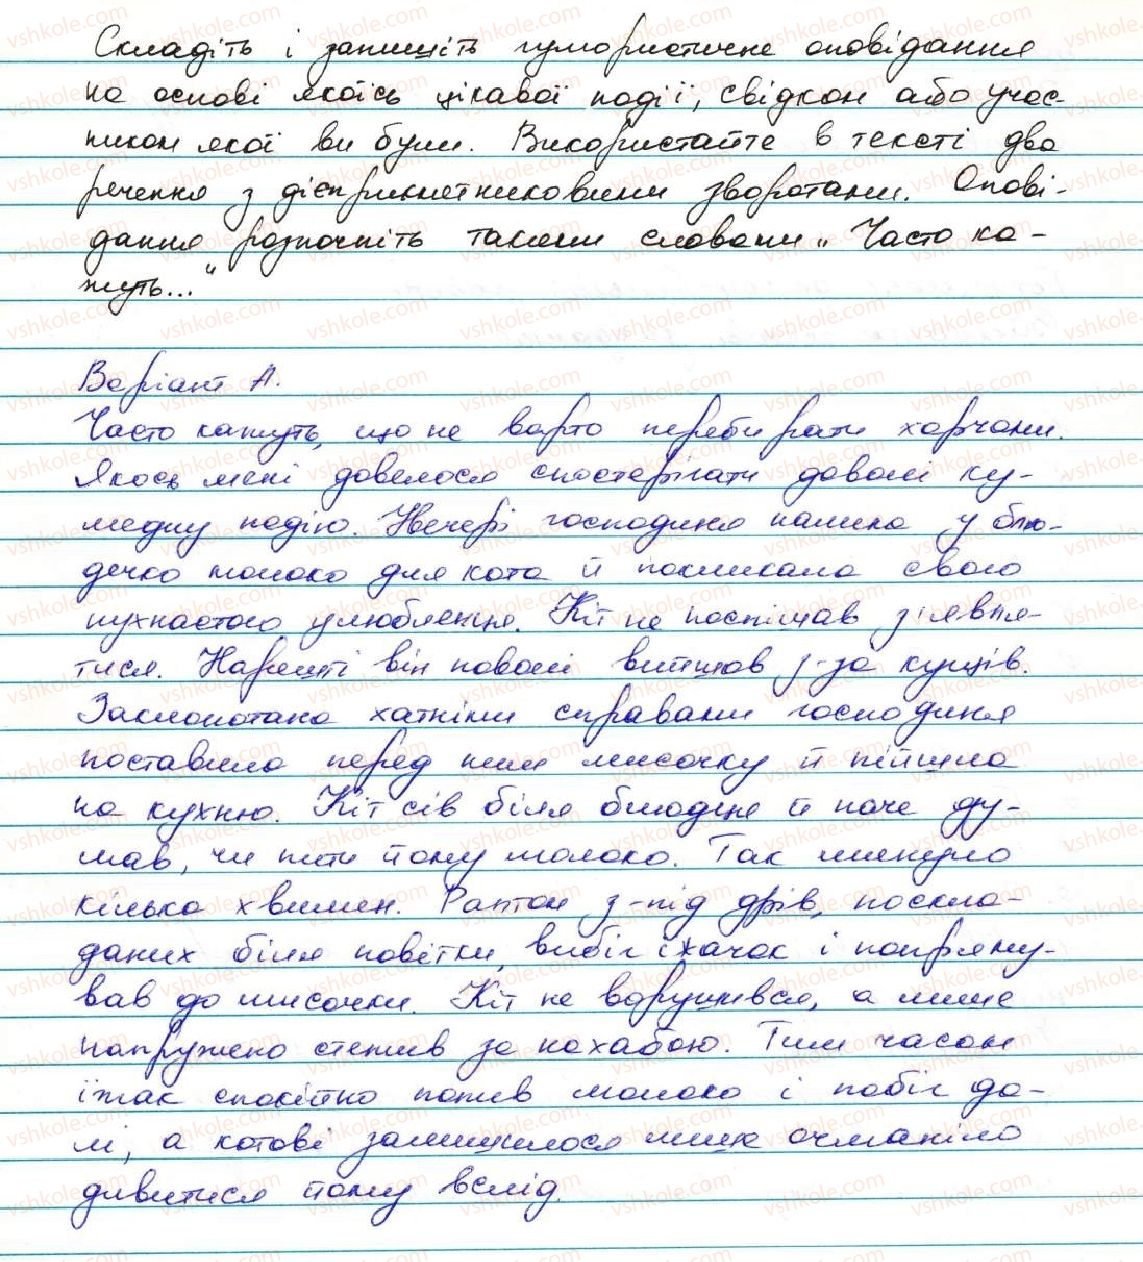 Складіть і запишіть гумористичне оповідання
на основі якоїсь цікавої події, свідком або учас-
ником якої ви були. Використайте в тексті два
речення з дієприкметниковими зворотами. Опові-
дання розпочніть такими словами „Часто ка-
жуть..."
Варіант А.
Часто кажуть, що не варто перебирати харчами.
Якось мені довелося спостерігати доволі ку-
медну подію. Ввечері господиня налила у блю-
дечко молоко для кота й покликала свого
пухнастого улюбленця. Кіт не поспішав з'явля-
тися. Нарешті він поволі вийшов з-за кущів.
Заклопотана хатніми справами господиня
поставила перед ним мисочку й пішла
на кухню. Кіт сів біля блюдця й наче ду-
мав, чи пити йому молоко. Так минуло
кілька хвилин. Раптом з-під дрів, поскла-
даних біля повітки, вибіг їжачок і попряму-
вав до мисочки. Кіт не ворушився, а лише
напружено стежив за нахабою. Тим часом
їжак спокійно попив молоко і побіг да-
лі, а котові залишилося лише очманіло
дивитися йому вслід.
vshkole.com